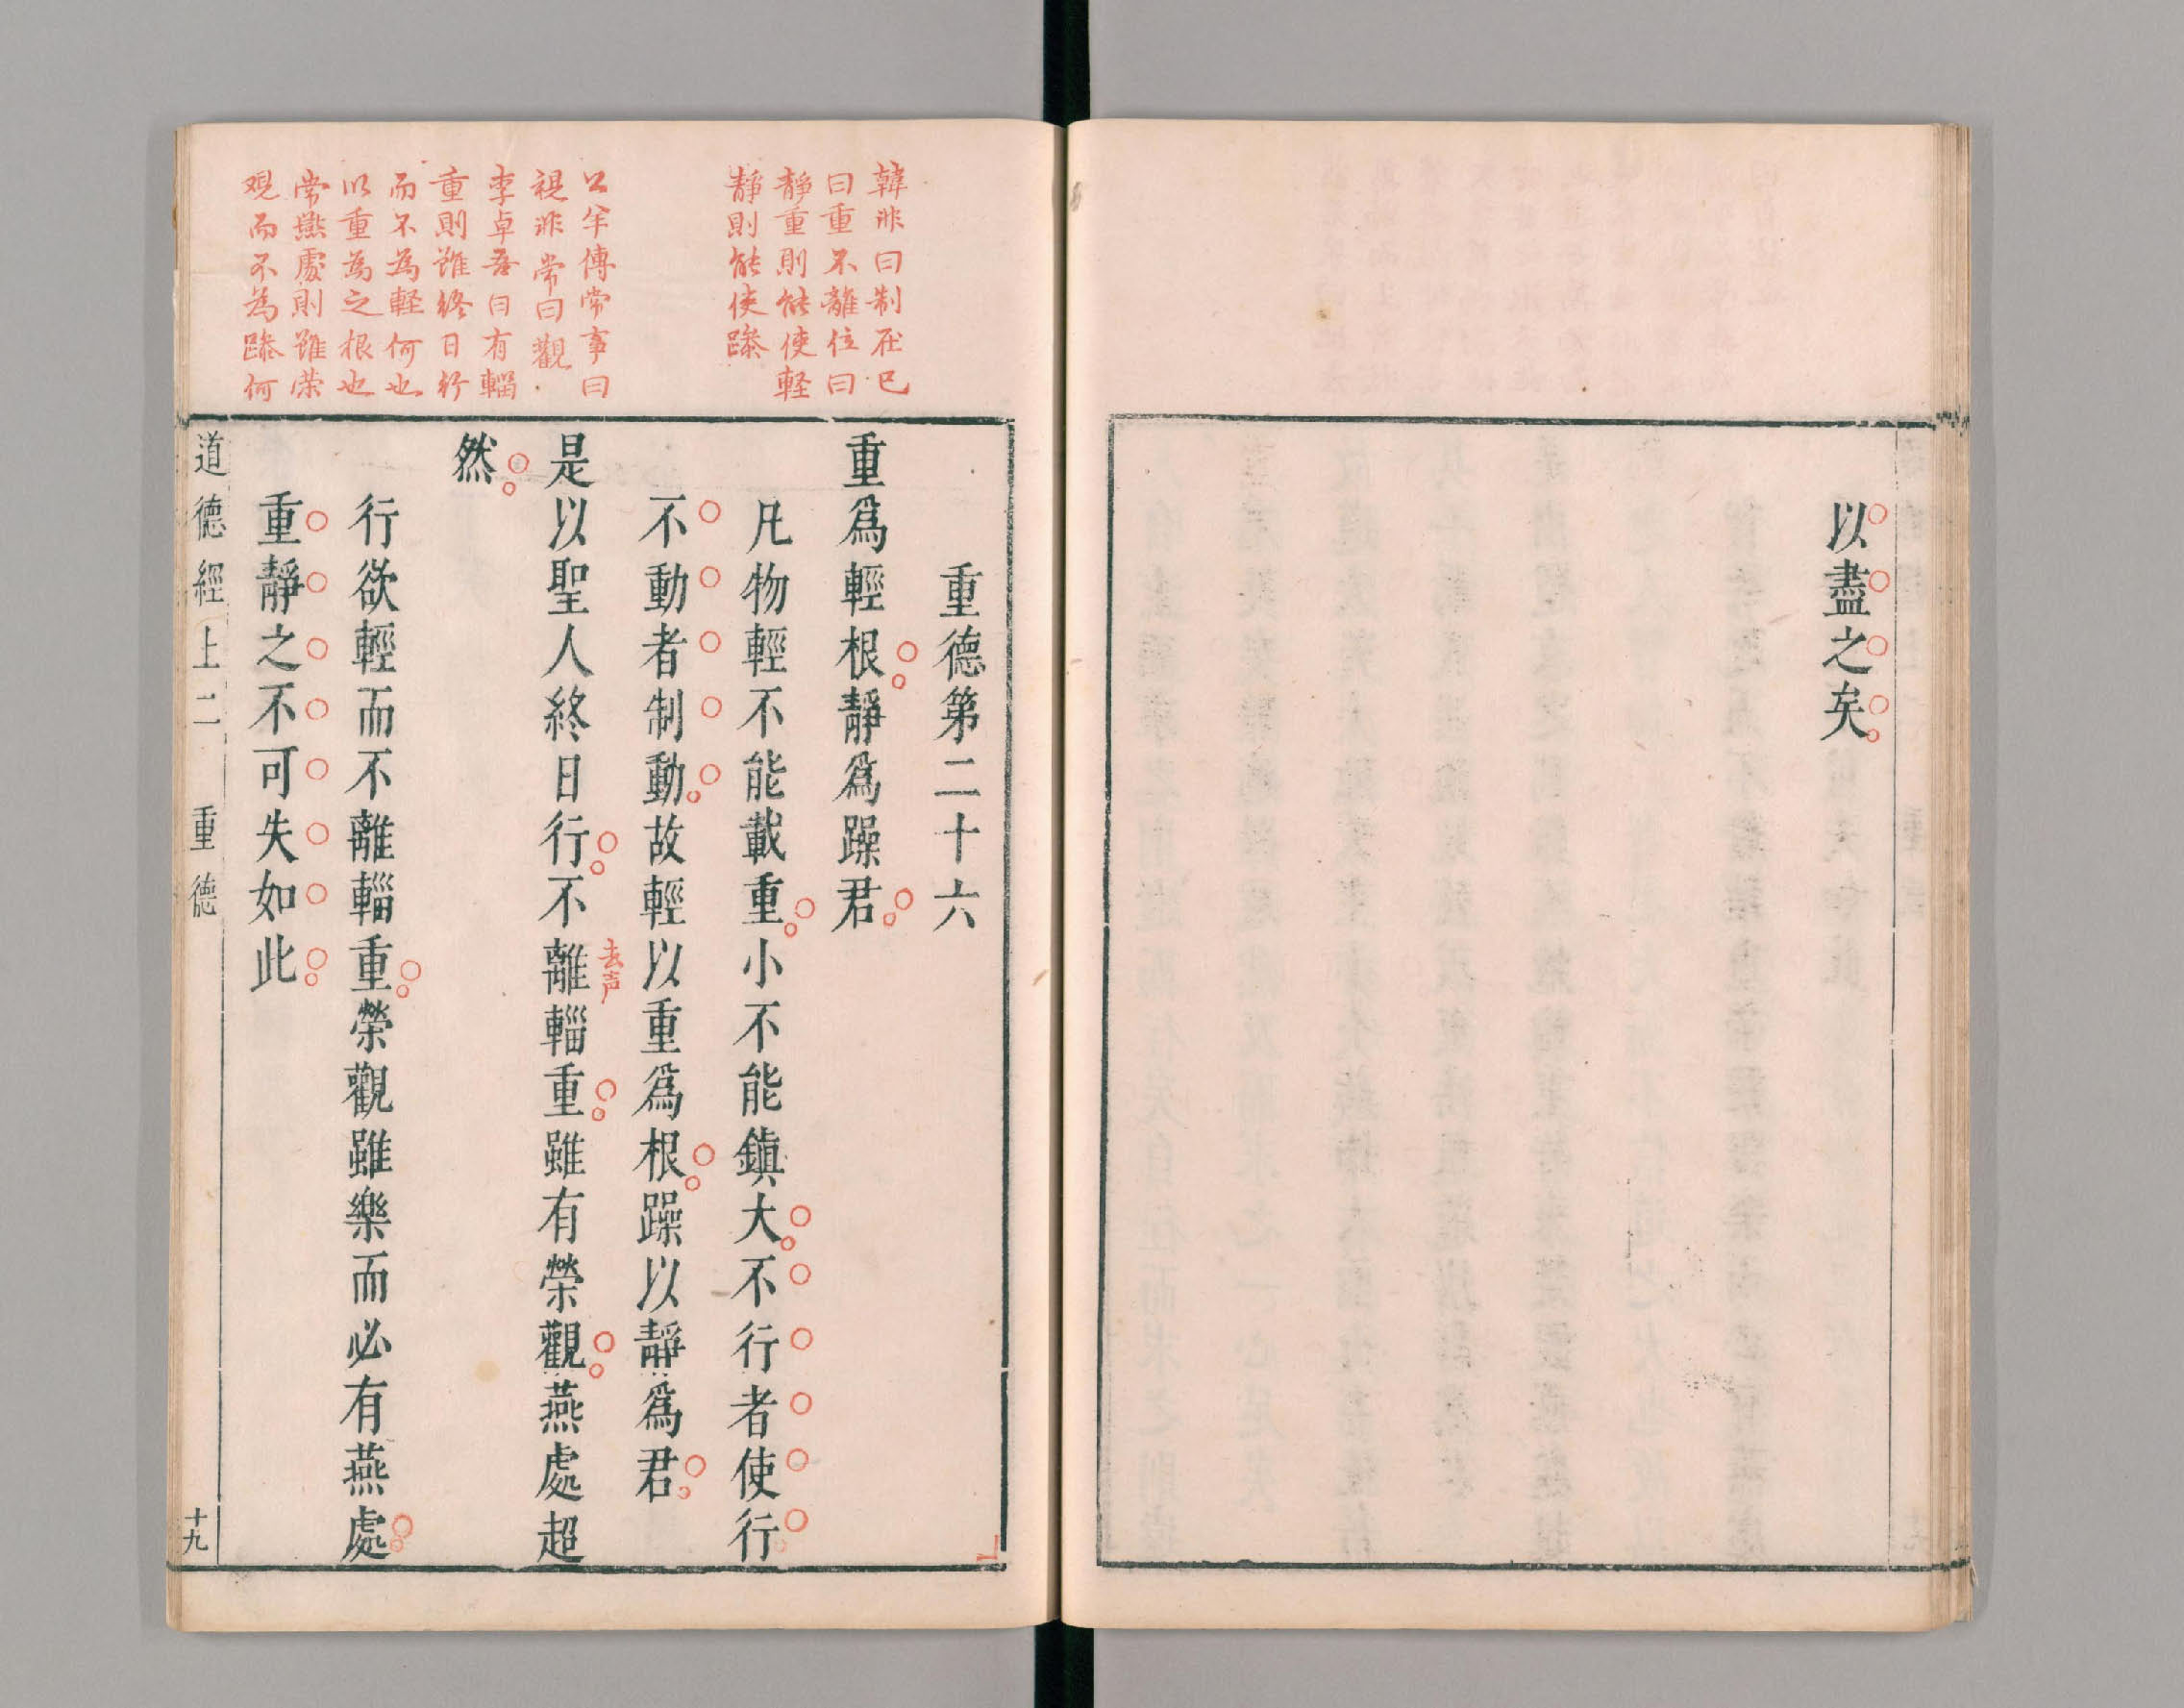 以盡之矣
韓非曰制在己
曰重不離位曰
靜重則能使輕
靜則能使躁
公羊傳常事曰
視非常曰觀
李卓吾曰有輜
重則雖終日行
而不為輕何也
以重為之根也
常燕處則雖荣
观而不為躁何
重德第二十六
重爲輕根靜爲躁君
凡物輕不能載重小不能鎮大不行者使行
不動者制動故輕以重爲根躁以靜爲君
是以聖人終日行不離輜重雖有榮觀燕處超
去声
然
行欲輕而不離輜重榮觀雖樂而必有燕處
重靜之不可失如此
道德經上二 重德 十九